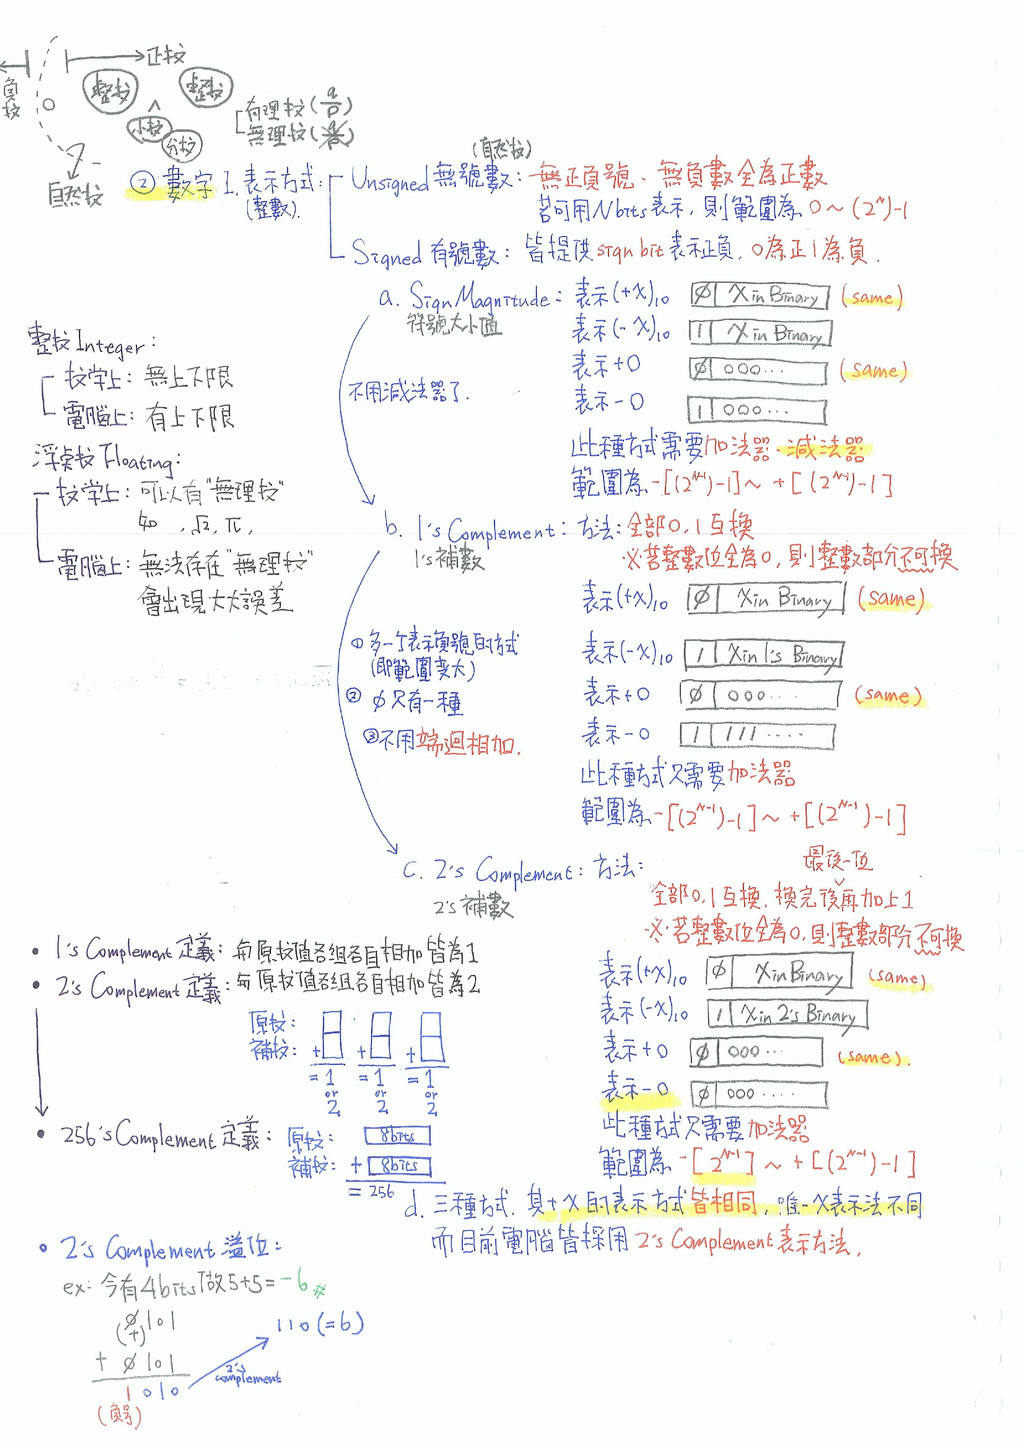 正校
負校
0
整校
整校
小校
分校
自然校
有理校(a/b)
無理校
② 數字 1. 表示方式:
(整數).
(自然校)
Unsigned 無號數: 無正負號、無負數全為正數
若可用 N bits 表示, 則範圍為 0 ~ (2^N)-1
Signed 有號數: 皆提供 sign bit 表示正負, 0為正1為負.
a. Sign Magnitude:
符號大小值
表示(+X)10 0 X in Binary (same)
表示(-X)10 1 X in Binary
表示+0 0 000... (same)
表示-0 1 000...
此種方式需要加法器、減法器
範圍為 -[(2^N-1)-1] ~ +[(2^N-1)-1]
不用減法器了.
整校 Integer:
校学上: 無上下限
電腦上: 有上下限
浮点校 Floating:
校学上: 可以有"無理校"
如 , √2, π,
電腦上: 無法存在"無理校"
會出現大大誤差
b. 1's Complement: 方法: 全部0,1互換
1's 補數
※若整數位全為0, 則整數部分不可換
表示(+X)10 0 X in Binary (same)
表示(-X)10 1 X in 1's Binary
表示+0 0 000.... (same)
表示-0 1 111....
此種方式只需要加法器
範圍為 -[(2^N-1)-1] ~ +[(2^N-1)-1]
① 多一个表示負號的方式
(即範圍变大)
② 0只有一種
③ 不用端迴相加.
c. 2's Complement: 方法:
2's 補數
最後一位
全部0,1互換, 換完後再加上1
※若整數位全為0, 則整數部分不可換
表示(+X)10 0 X in Binary (same)
表示(-X)10 1 X in 2's Binary
表示+0 0 000... (same).
表示-0 0 000....
此種方式只需要加法器
範圍為 -[2^N-1] ~ +[(2^N-1)-1]
• 1's Complement 定義: 每原校值各組各自相加皆為1
• 2's Complement 定義: 每原校值各組各自相加皆為2
原校:
補校: + + +
=1 =1 =1
or or or
2 2 2
• 256's Complement 定義: 原校: 8bits
補校: + 8bits
= 256
d. 三種方式, 其+X的表示方式皆相同, 唯-X表示法不同
而目前電腦皆採用 2's Complement 表示方法,
• 2's Complement 溢位:
ex: 今有4bits做5+5=-6#
0101
(+)
+ 0101
1010
(負号)
2's complement
110 (=6)